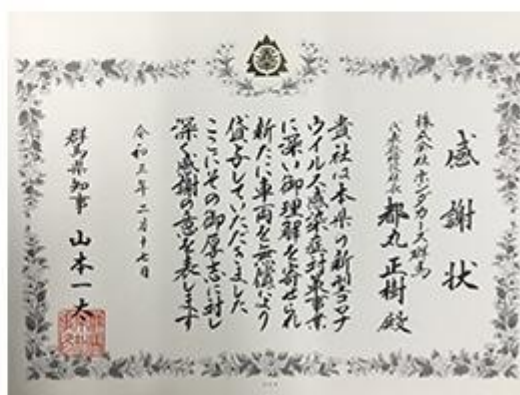 感謝状
株式会社ホンダカーズ群馬
代表取締役社長 都丸正樹 殿
貴社は本県の新型コロナ
ウイルス感染症対策事業
に深い御理解を寄せられ
新たに車両を無償
貸与していただきました
ここにその御厚志に対し
深く感謝の意を表します
令和三年二月十七日
群馬県知事 山本一太